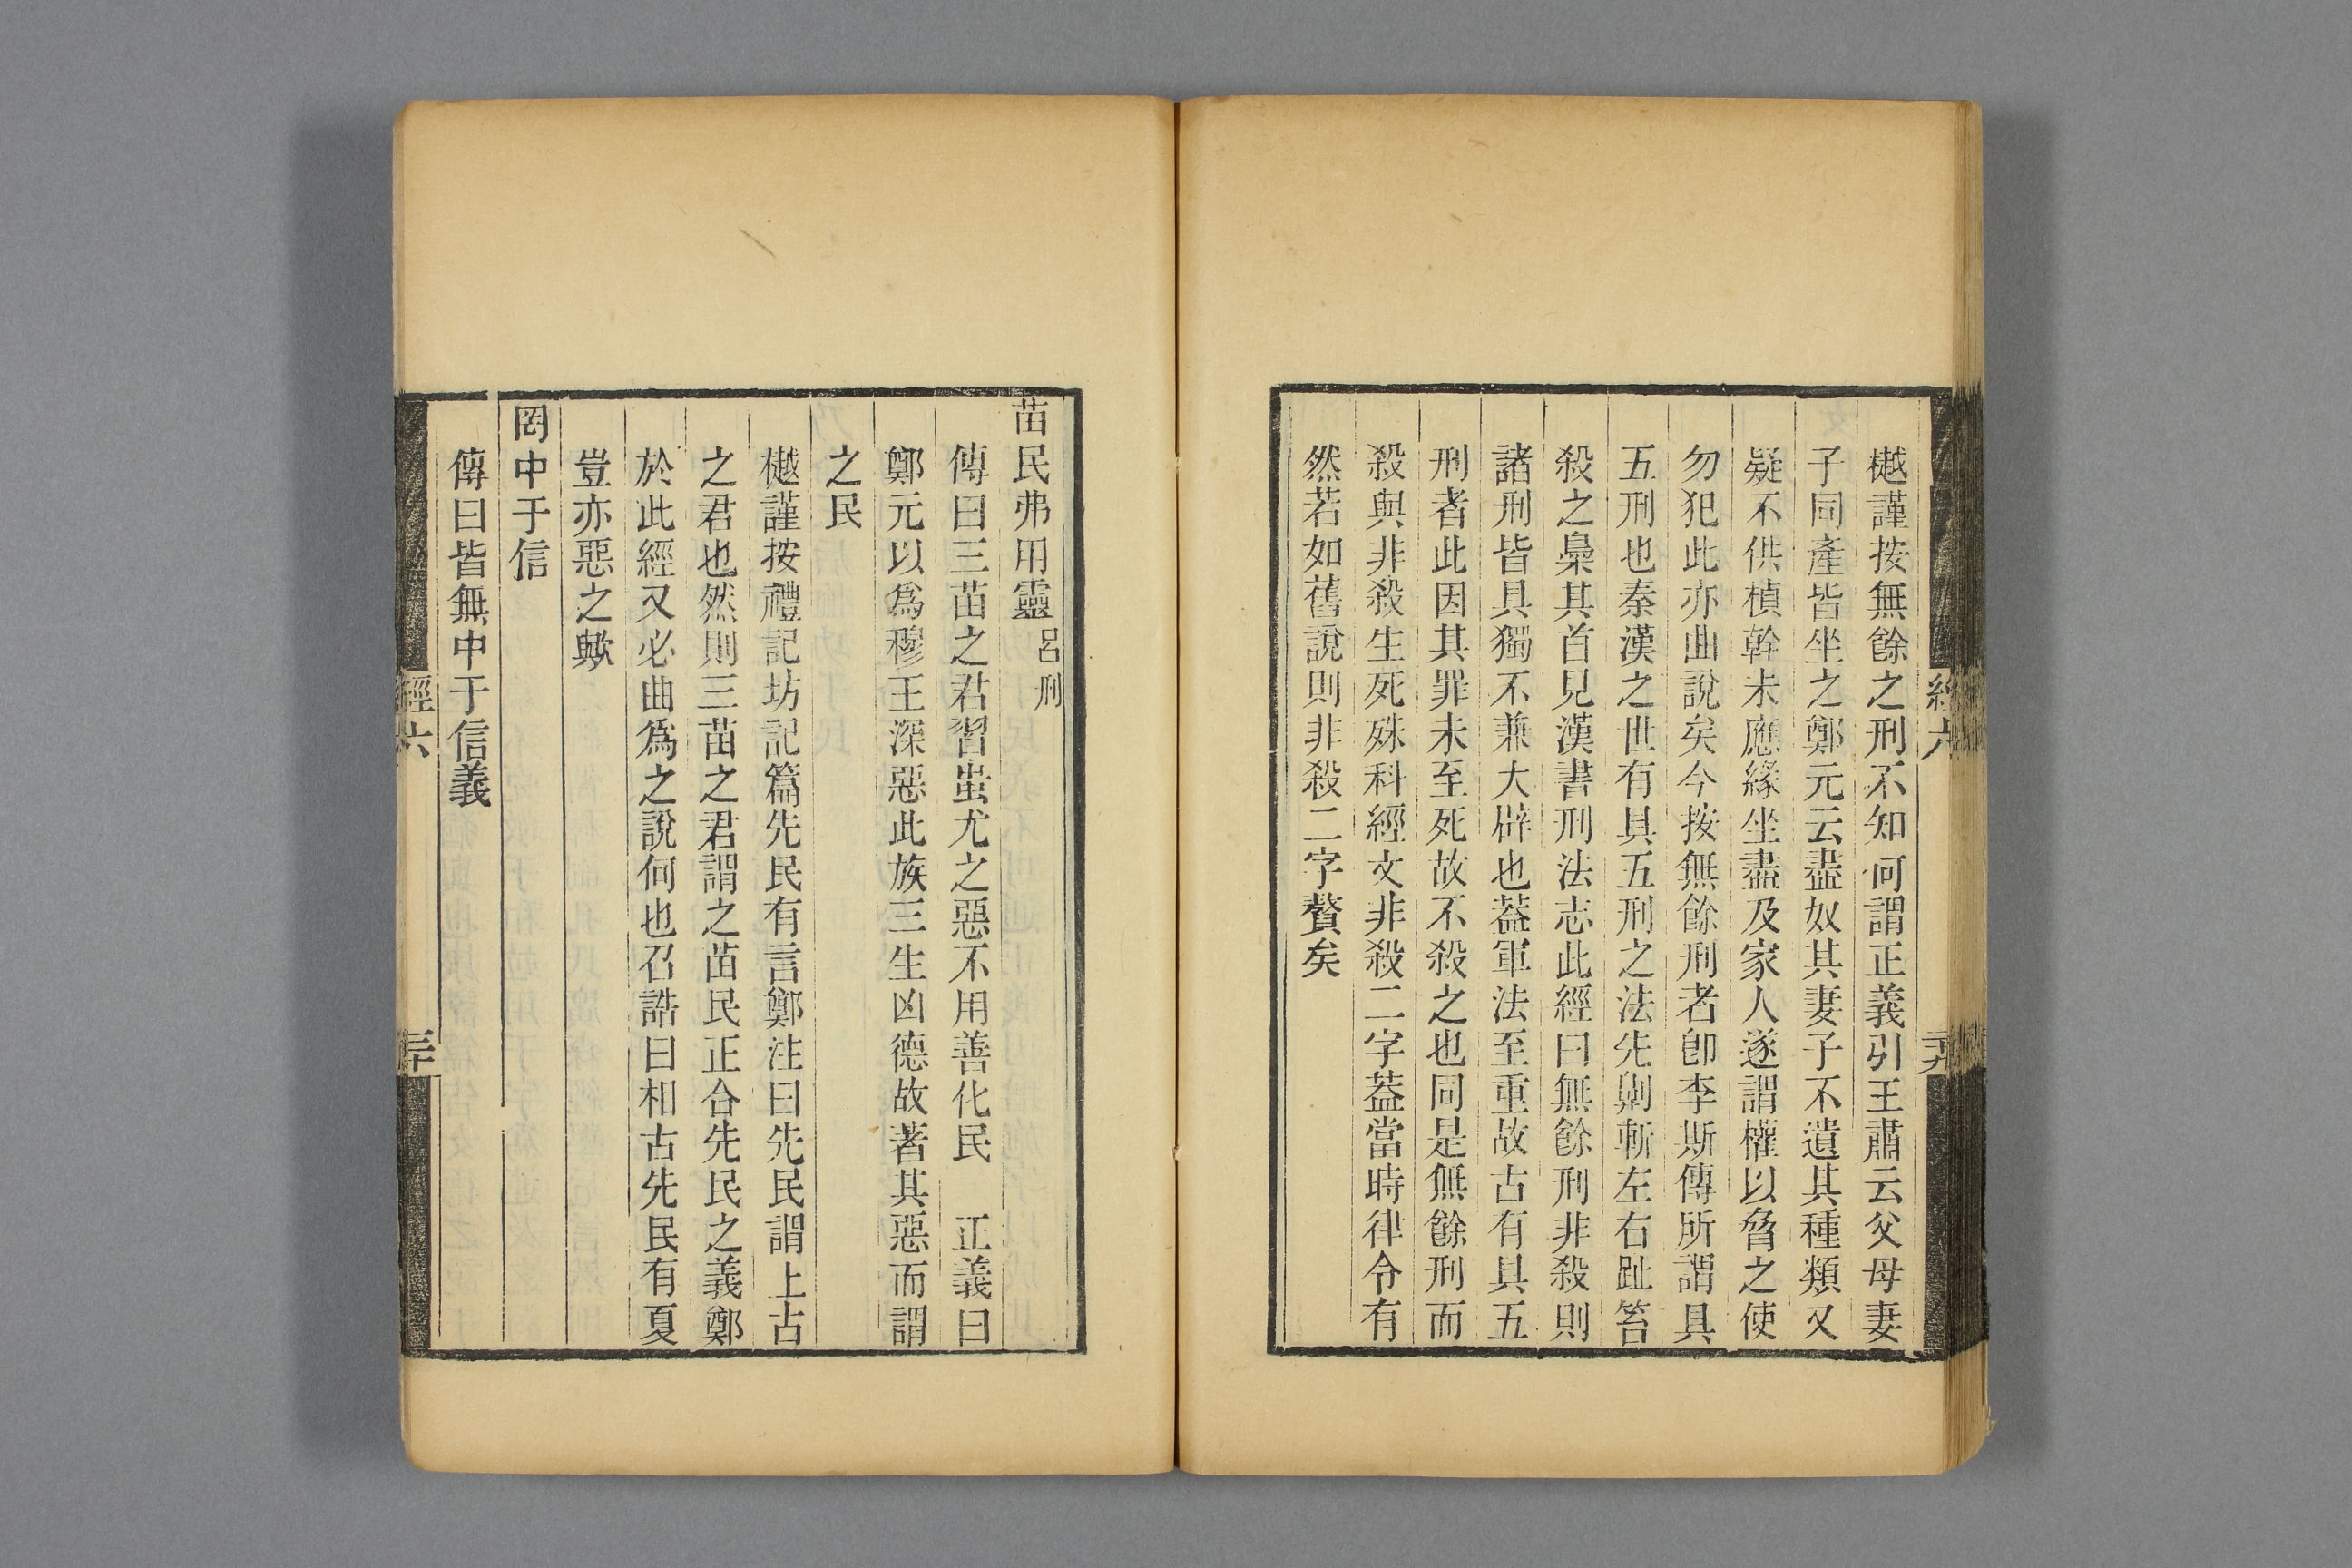 樾謹按無餘之刑不知何謂正義引王肅云父母妻
子同產皆坐之鄭元云盡奴其妻子不遺其種類又
疑不供楨幹未應緣坐盡及家人遂謂權以脅之使
勿犯此亦曲說矣今按無餘刑者卽李斯傳所謂具
五刑也秦漢之世有具五刑之法先劓斬左右趾笞
殺之梟其首見漢書刑法志此經曰無餘刑非殺則
諸刑皆具獨不兼大辟也葢軍法至重故古有具五
刑者此因其罪未至死故不殺之也同是無餘刑而
殺與非殺生死殊科經文非殺二字葢當時律令有
然若如舊說則非殺二字贅矣
經六
二十九
苗民弗用靈呂刑
傳曰三苗之君習蚩尤之惡不用善化民　正義曰
鄭元以爲穆王深惡此族三生凶德故著其惡而謂
之民
樾謹按禮記坊記篇先民有言鄭注曰先民謂上古
之君也然則三苗之君謂之苗民正合先民之義鄭
於此經又必曲爲之說何也召誥曰相古先民有夏
豈亦惡之歟
罔中于信
傳曰皆無中于信義
經六
三十